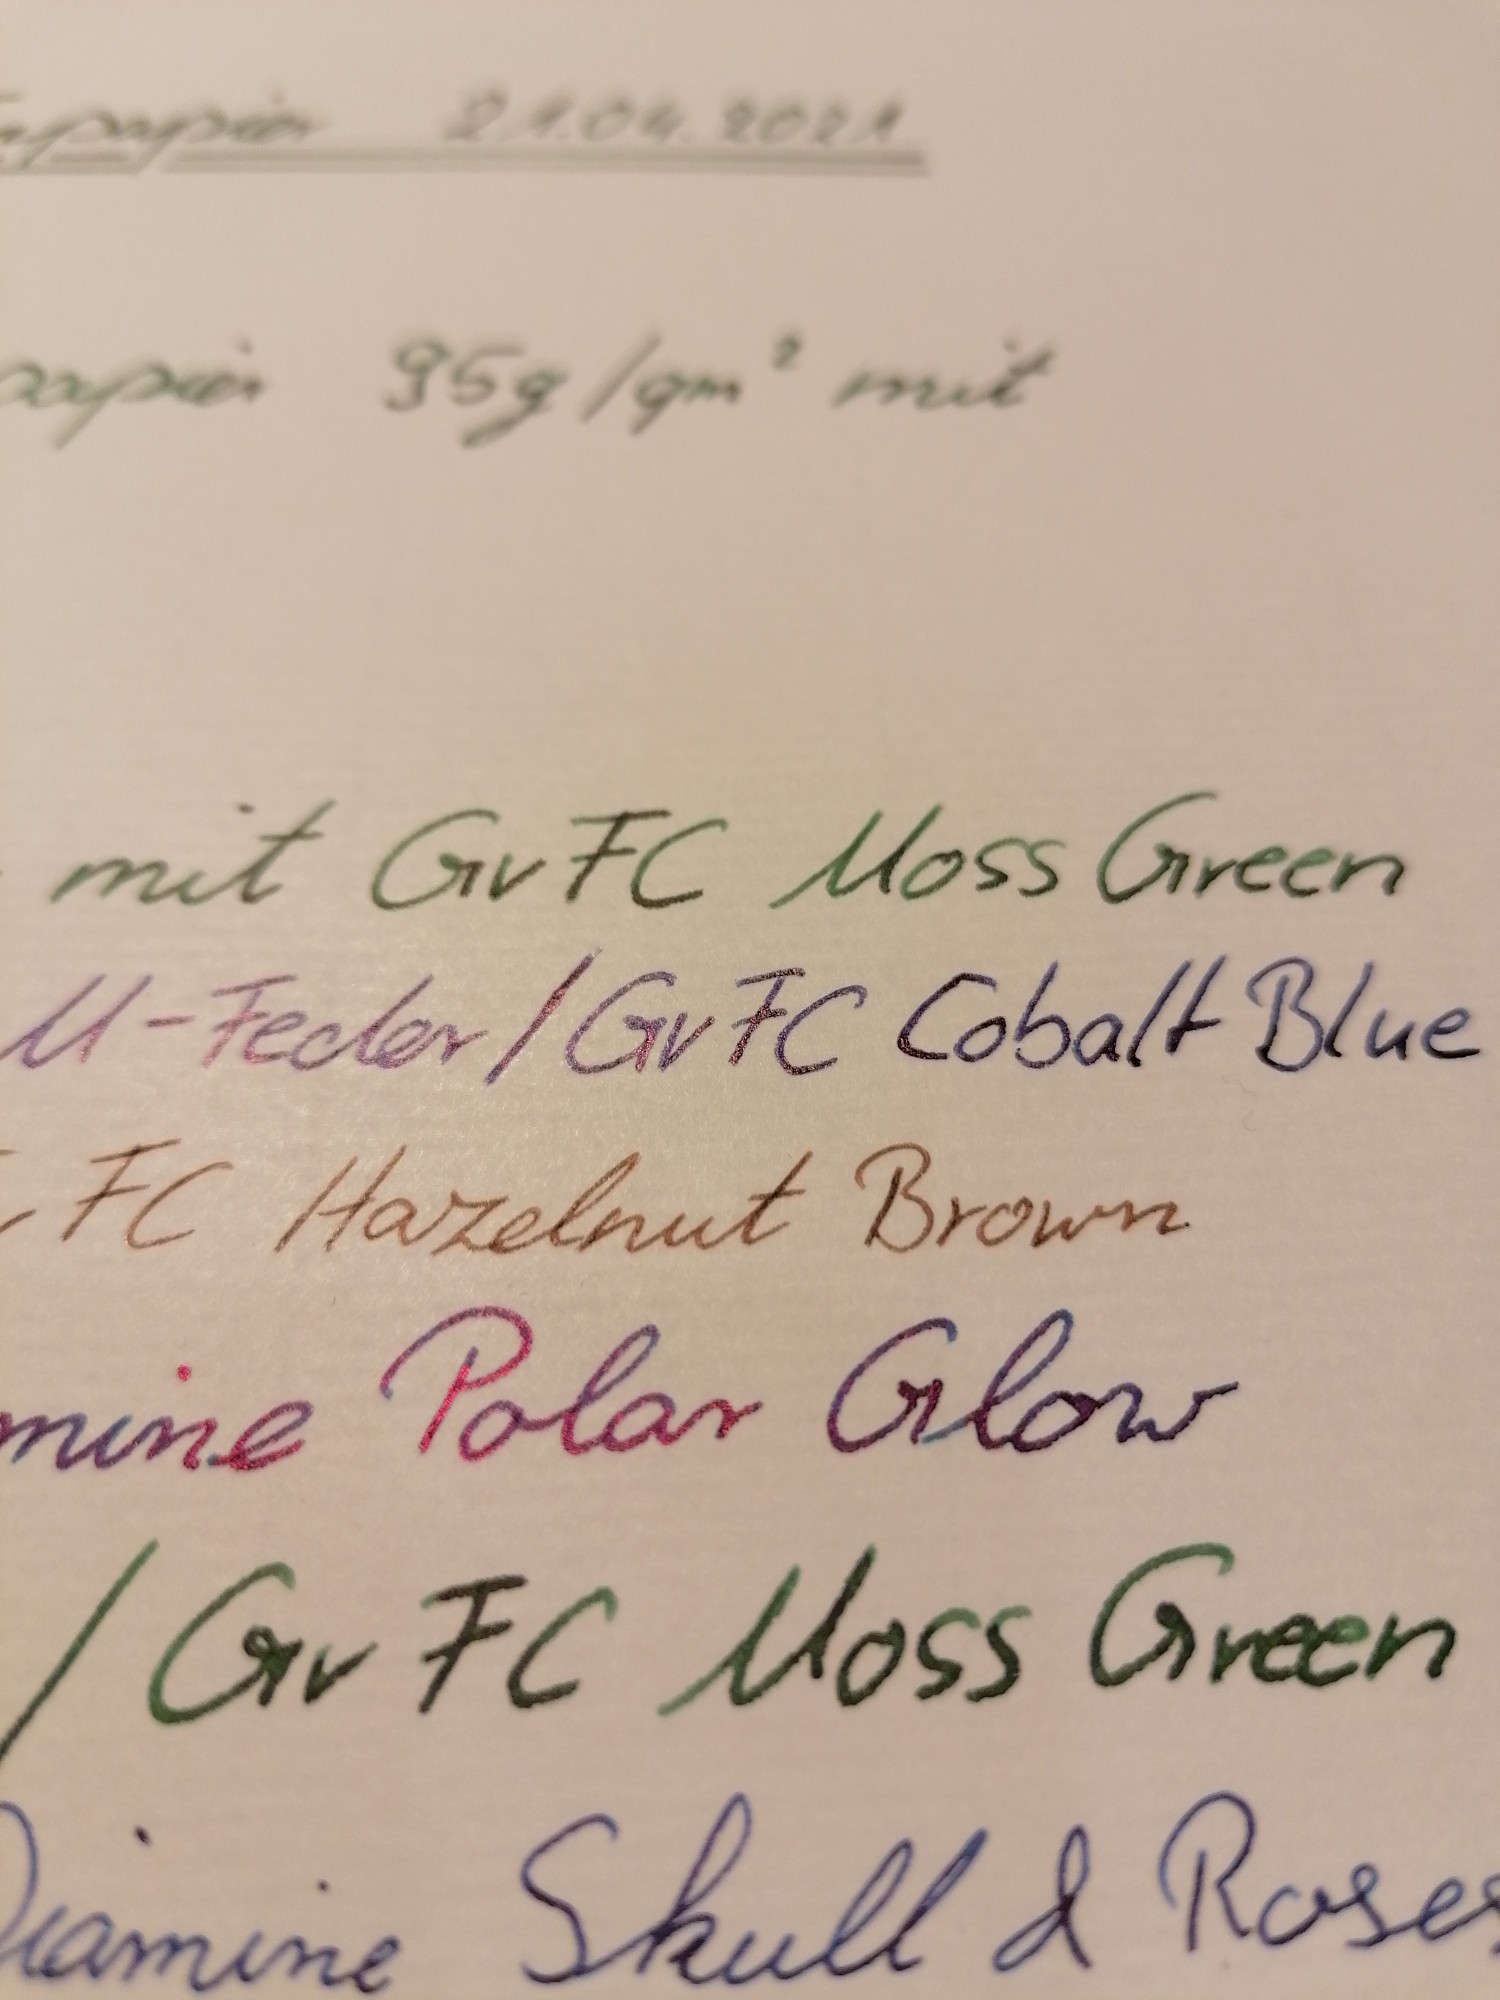 papier 21.04.2021
papier 95g/qm² mit
mit GvFC Moss Green
M-Feder/GvFC Cobalt Blue
FC Hazelnut Brown
mine Polar Glow
/GvFC Moss Green
Diamine Skull & Roses